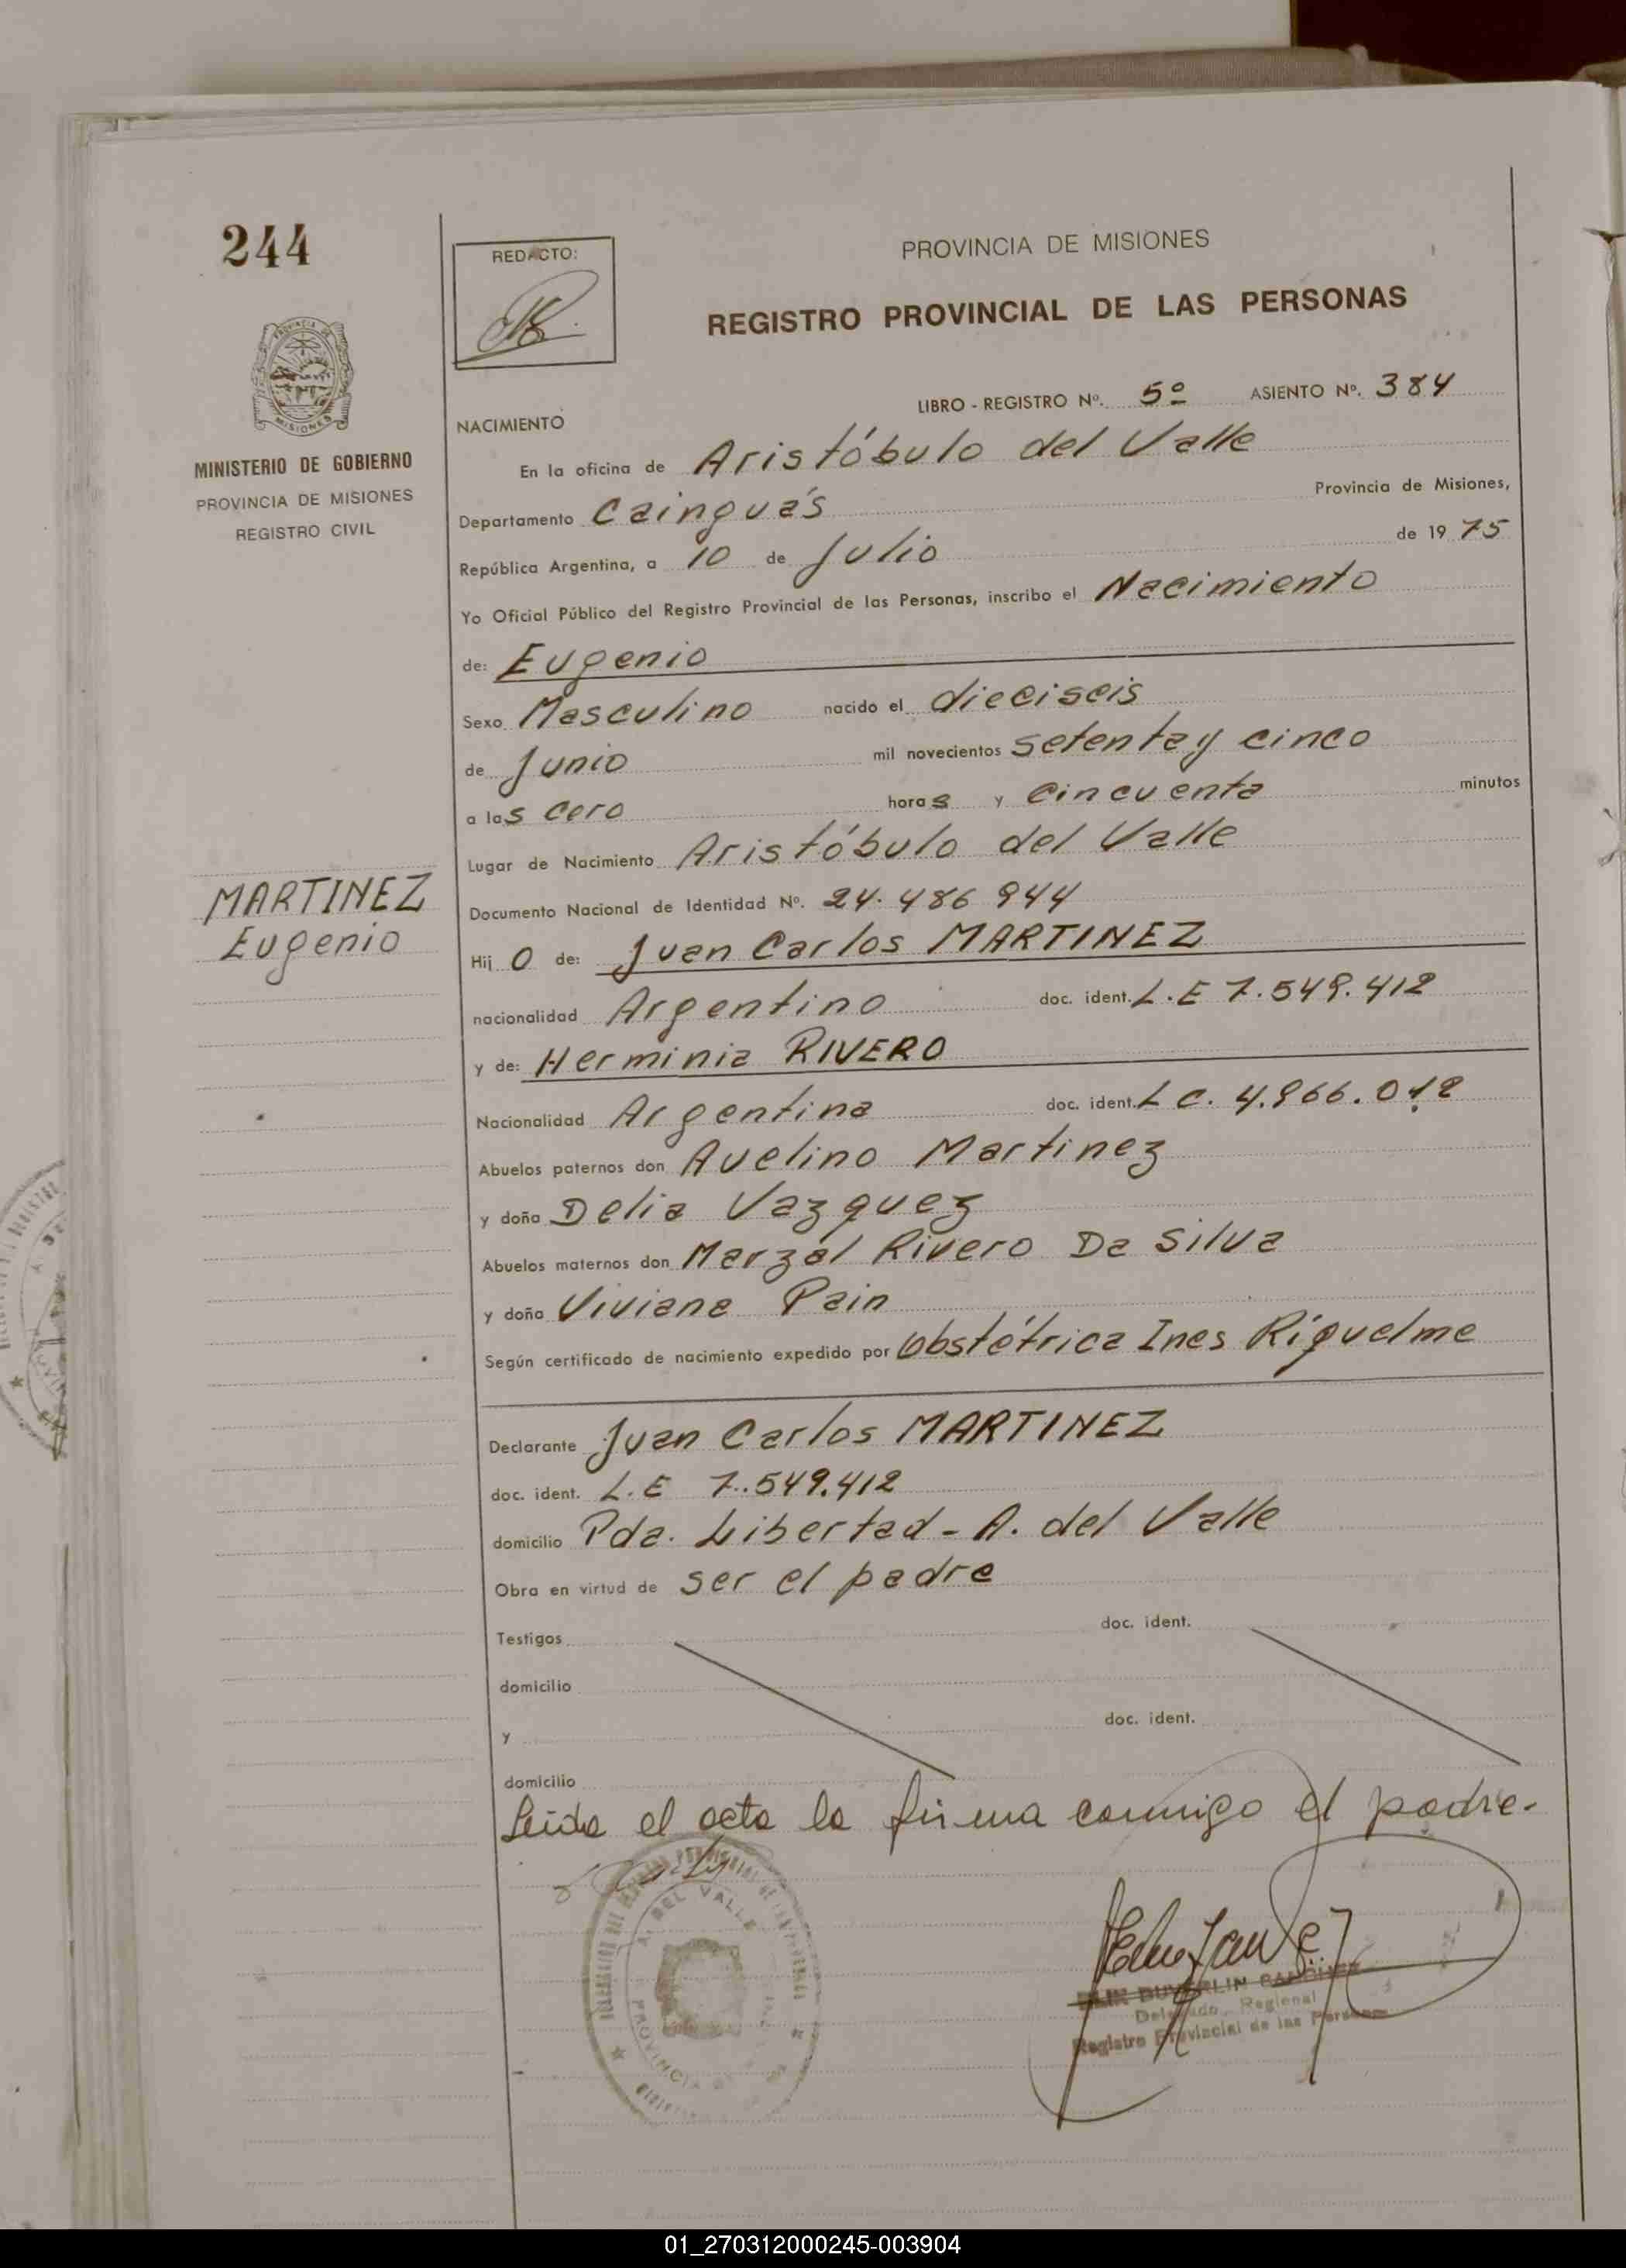 244
REDACTO:
PROVINCIA DE MISIONES
REGISTRO PROVINCIAL DE LAS PERSONAS
PROVINCIA DE MISIONES
MINISTERIO DE GOBIERNO
PROVINCIA DE MISIONES
REGISTRO CIVIL
LIBRO - REGISTRO Nº. 5º ASIENTO Nº. 384
NACIMIENTO
En la oficina de Aristóbulo del Valle
Departamento Cainguás Provincia de Misiones,
República Argentina, a 10 de Julio de 1975
Yo Oficial Público del Registro Provincial de las Personas, inscribo el Nacimiento
de: Eugenio
Sexo Masculino nacido el dieciseis
de Junio mil novecientos setenta y cinco
a las cero horas y cincuenta minutos
Lugar de Nacimiento Aristóbulo del Valle
MARTINEZ
Eugenio
Documento Nacional de Identidad Nº. 24.486 944
Hijo de: Juan Carlos MARTINEZ
nacionalidad Argentino doc. ident. L.E 7.549.412
y de: Herminia RIVERO
Nacionalidad Argentina doc. ident. L C. 4.966.012
Abuelos paternos don Avelino Martinez
y doña Delia Vazquez
Abuelos maternos don Marzal Rivero Da Silva
y doña Viviana Pain
Según certificado de nacimiento expedido por Obstétrica Ines Riquelme
Declarante Juan Carlos MARTINEZ
doc. ident. L.E 7.549.412
domicilio Pda. Libertad - A. del Valle
Obra en virtud de ser el padre
Testigos doc. ident.
domicilio
y doc. ident.
domicilio
Leida el acta la firma conmigo el padre.
A. DEL VALLE
PROVINCIA
Delegado Regional
Registro Provincial de las Personas
01_270312000245-003904